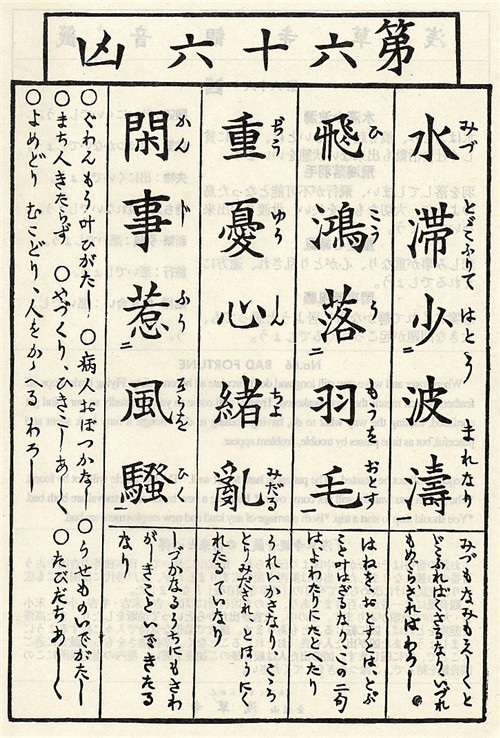 第六十六凶
水滞少波濤
みづ とどこふりて はとう まれなり
みづもなみもえしくと
どこふればくさるなり、いづれ
もめぐらざればわろし
飛鴻落羽毛
ひ こう う もうを おとす
はねををおとすとは、とぶ
こと叶はざるなり、この二句
はよわたりにたとへたり
重憂心緒亂
ぢう ゆう しん ちよ みだる
うれいかさなり、こころ
とりみだされ、とほうにく
れたるていなり
閑事惹風騷
かん じ ふう さうを ひく
しづかなるうちにもさわ
がしきこといできたる
なり
○ぐわんもう叶ひがたし ○病人おぼつかなし ○うせものいでがたし
○まち人きたらず ○やづくり、ひきこしあしく ○たびだちあしく
○よめどり むこどり、人をかゝへる わろし